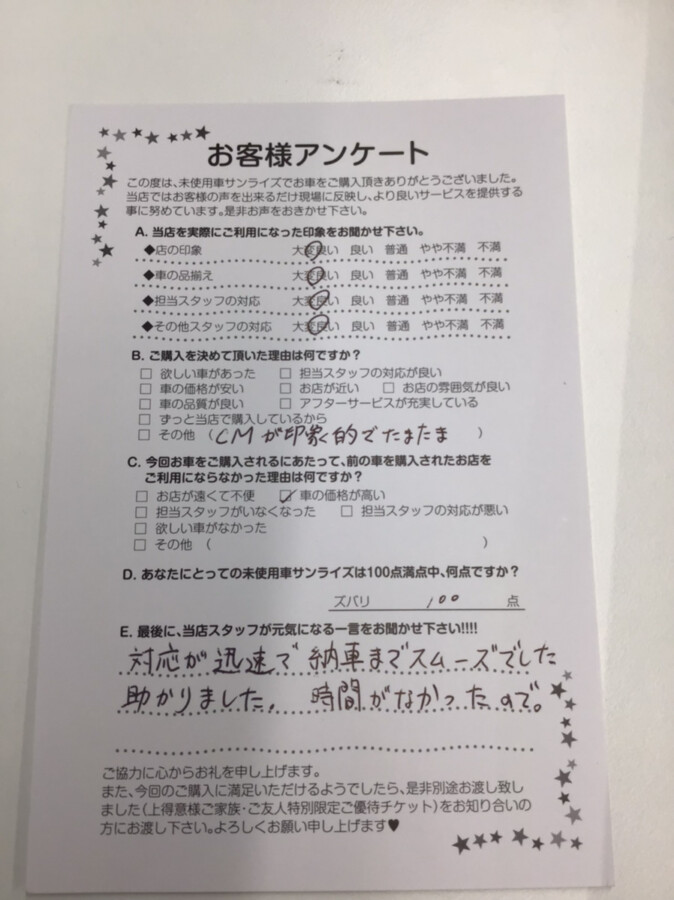 お客様アンケート
この度は、未使用車サンライズでお車をご購入頂きありがとうございました。
当店ではお客様の声を出来るだけ現場に反映し、より良いサービスを提供する
事に努めています。是非お声をおきかせ下さい。
A. 当店を実際にご利用になった印象をお聞かせ下さい。
◆店の印象 大変良い 良い 普通 やや不満 不満
◆車の品揃え 大変良い 良い 普通 やや不満 不満
◆担当スタッフの対応 大変良い 良い 普通 やや不満 不満
◆その他スタッフの対応 大変良い 良い 普通 やや不満 不満
B. ご購入を決めて頂いた理由は何ですか？
□ 欲しい車があった □ 担当スタッフの対応が良い
□ 車の価格が安い □ お店が近い □ お店の雰囲気が良い
□ 車の品質が良い □ アフターサービスが充実している
□ ずっと当店で購入しているから
□ その他 (CMが印象的でたまたま )
C. 今回お車をご購入されるにあたって、前の車を購入されたお店を
ご利用にならなかった理由は何ですか？
□ お店が遠くて不便 ☑ 車の価格が高い
□ 担当スタッフがいなくなった □ 担当スタッフの対応が悪い
□ 欲しい車がなかった
□ その他 ( )
D. あなたにとっての未使用車サンライズは100点満点中、何点ですか？
ズバリ 100 点
E. 最後に、当店スタッフが元気になる一言をお聞かせ下さい!!!!
対応が迅速で納車までスムーズでした
助かりました。時間がなかったので。
ご協力に心からお礼を申し上げます。
また、今回のご購入に満足いただけるようでしたら、是非別途お渡し致し
ました(上得意様ご家族・ご友人特別限定ご優待チケット)をお知り合いの
方にお渡し下さい。よろしくお願い申し上げます♥